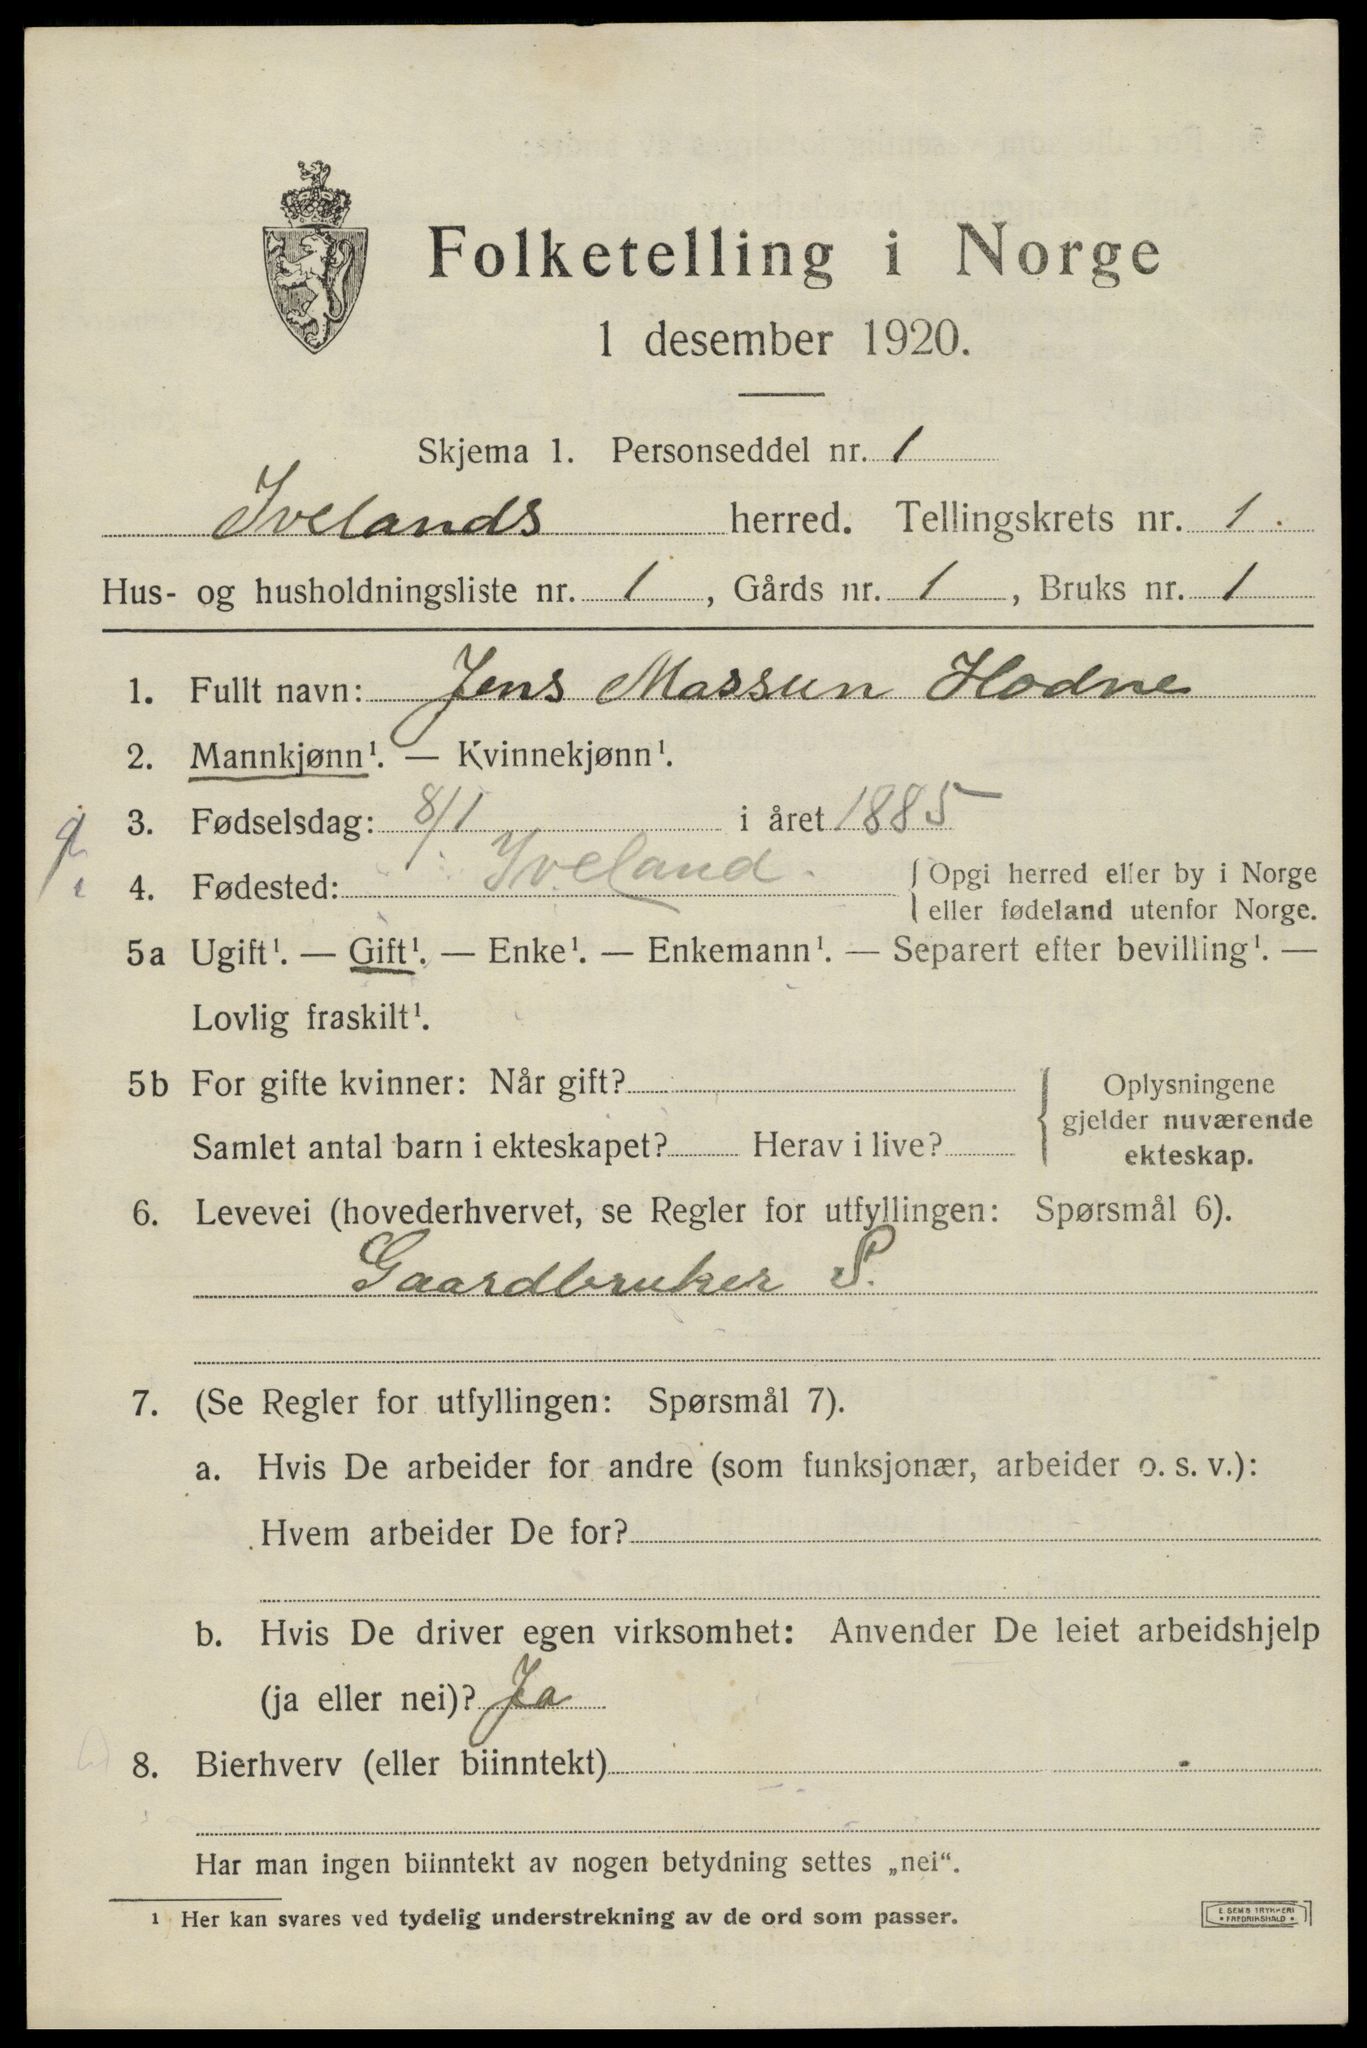 Folketelling i Norge
1 desember 1920.
Skjema 1. Personseddel nr. 1
Ivelands herred. Tellingskrets nr. 1.
Hus- og husholdningsliste nr. 1, Gårds nr. 1, Bruks nr. 1
1. Fullt navn: Jens Massun Hodne
2. Mannkjønn¹. — Kvinnekjønn¹.
3. Fødselsdag: 8/1 i året 1885
4. Fødested: Iveland. Opgi herred eller by i Norge
eller fødeland utenfor Norge.
5a Ugift¹. — Gift¹. — Enke¹. — Enkemann¹. — Separert efter bevilling¹. —
Lovlig fraskilt¹.
5b For gifte kvinner: Når gift? Oplysningene
gjelder nuværende
Samlet antal barn i ekteskapet? Herav i live? ekteskap.
6. Levevei (hovederhvervet, se Regler for utfyllingen: Spørsmål 6).
Gaardbruker S.
7. (Se Regler for utfyllingen: Spørsmål 7).
a. Hvis De arbeider for andre (som funksjonær, arbeider o. s. v.):
Hvem arbeider De for?
b. Hvis De driver egen virksomhet: Anvender De leiet arbeidshjelp
(ja eller nei)? Ja
8. Bierhverv (eller biinntekt) -
Har man ingen biinntekt av nogen betydning settes „nei“.
¹ Her kan svares ved tydelig understrekning av de ord som passer.
E. SEM'S TRYKKERI
• FREDRIKSHALD •